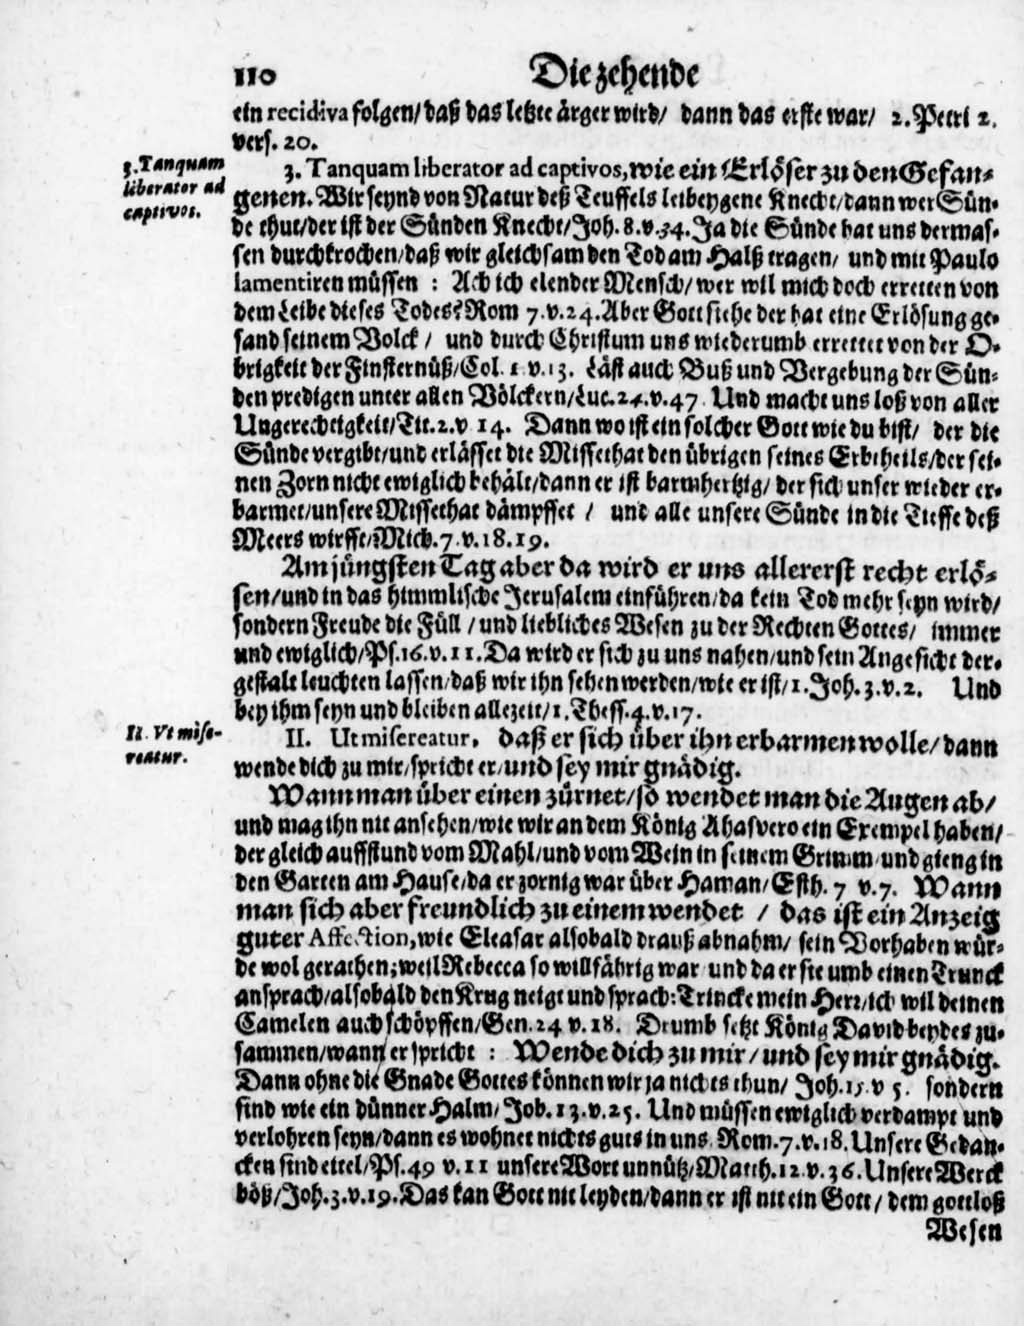 110 Die zehende
ein recidiva folgen/ daß das letzte ärger wird/ dann das erste war/ 2. Petri 2.
vers. 20.
3. Tanquam
liberator ad
captivos.
3. Tanquam liberator ad captivos, wie ein Erlöser zu den Gefan-
genen. Wir seynd von Natur deß Teuffels leibeygene Knecht/ dann wer Sün-
de thut/ der ist der Sünden Knecht/ Joh. 8. v. 34. Ja die Sünde hat uns dermas-
sen durchkrochen/ daß wir gleichsam den Tod am Halß tragen/ und mit Paulo
lamentiren müssen : Ach ich elender Mensch/ wer wil mich doch erretten von
dem Leibe dieses Todes? Rom 7. v. 24. Aber Gott siehe der hat eine Erlösung ge-
sand seinem Volck / und durch Christum uns wiederumb errettet von der O-
brigkeit der Finsternüß/ Col. 1. v. 13. Läst auch Buß und Vergebung der Sün-
den predigen unter allen Völckern/ Luc. 24. v. 47. Und macht uns loß von aller
Ungerechtigkeit/ Tit. 2. v 14. Dann wo ist ein solcher Gott wie du bist/ der die
Sünde vergibt/ und erlässet die Missethat den übrigen seines Erbtheils/ der sei-
nen Zorn nicht ewiglich behält/ dann er ist barmhertzig/ der sich unser wieder er-
barmet/ unsere Missethat dämpffet / und alle unsere Sünde in die Tieffe deß
Meers wirfft/ Mich. 7. v. 18. 19.
Am jüngsten Tag aber da wird er uns allererst recht erlö-
sen/ und in das himmlische Jerusalem einführen/ da kein Tod mehr seyn wird/
sondern Freude die Füll / und liebliches Wesen zu der Rechten Gottes/ immer
und ewiglich/ Ps. 16. v. 11. Da wird er sich zu uns nahen/ und sein Angesicht der-
gestalt leuchten lassen/ daß wir ihn sehen werden/ wie er ist/ 1. Joh. 3. v. 2. Und
bey ihm seyn und bleiben allezeit/ 1. Thess. 4. v. 17.
II. Vt mise-
reatur.
II. Ut misereatur, daß er sich über ihn erbarmen wolle/ dann
wende dich zu mir/ spricht er/ und sey mir gnädig.
Wann man über einen zürnet/ so wendet man die Augen ab/
und mag ihn nit ansehen/ wie wir an dem König Ahasvero ein Exempel haben/
der gleich auffstund vom Mahl/ und vom Wein in seinem Grimm/ und gieng in
den Garten am Hause/ da er zornig war über Haman/ Esth. 7 v. 7. Wann
man sich aber freundlich zu einem wendet / das ist ein Anzeig
guter Affection, wie Eleasar alsobald drauß abnahm/ sein Vorhaben wür-
de wol gerathen; weil Rebecca so willfährig war/ und da er sie umb einen Trunck
ansprach/ alsobald den Krug neigt und sprach: Trincke mein Herr/ ich wil deinen
Camelen auch schöpffen/ Gen. 24 v. 18. Drumb setzt König David beydes zu-
sammen/ wann er spricht : Wende dich zu mir/ und sey mir gnädig.
Dann ohne die Gnade Gottes können wir ja nichts thun/ Joh. 15. v 5. sondern
sind wie ein dünner Halm/ Job. 13. v. 25. Und müssen ewiglich verdampt und
verlohren seyn/ dann es wohnet nichts guts in uns. Rom. 7. v. 18. Unsere Gedan-
cken sind eitel/ Ps. 49 v. 11 unsere Wort unnütz/ Matth. 12. v. 36. Unsere Werck
böß/ Joh. 3. v. 19. Das kan Gott nit leyden/ dann er ist nit ein Gott/ dem gottloß
Wesen